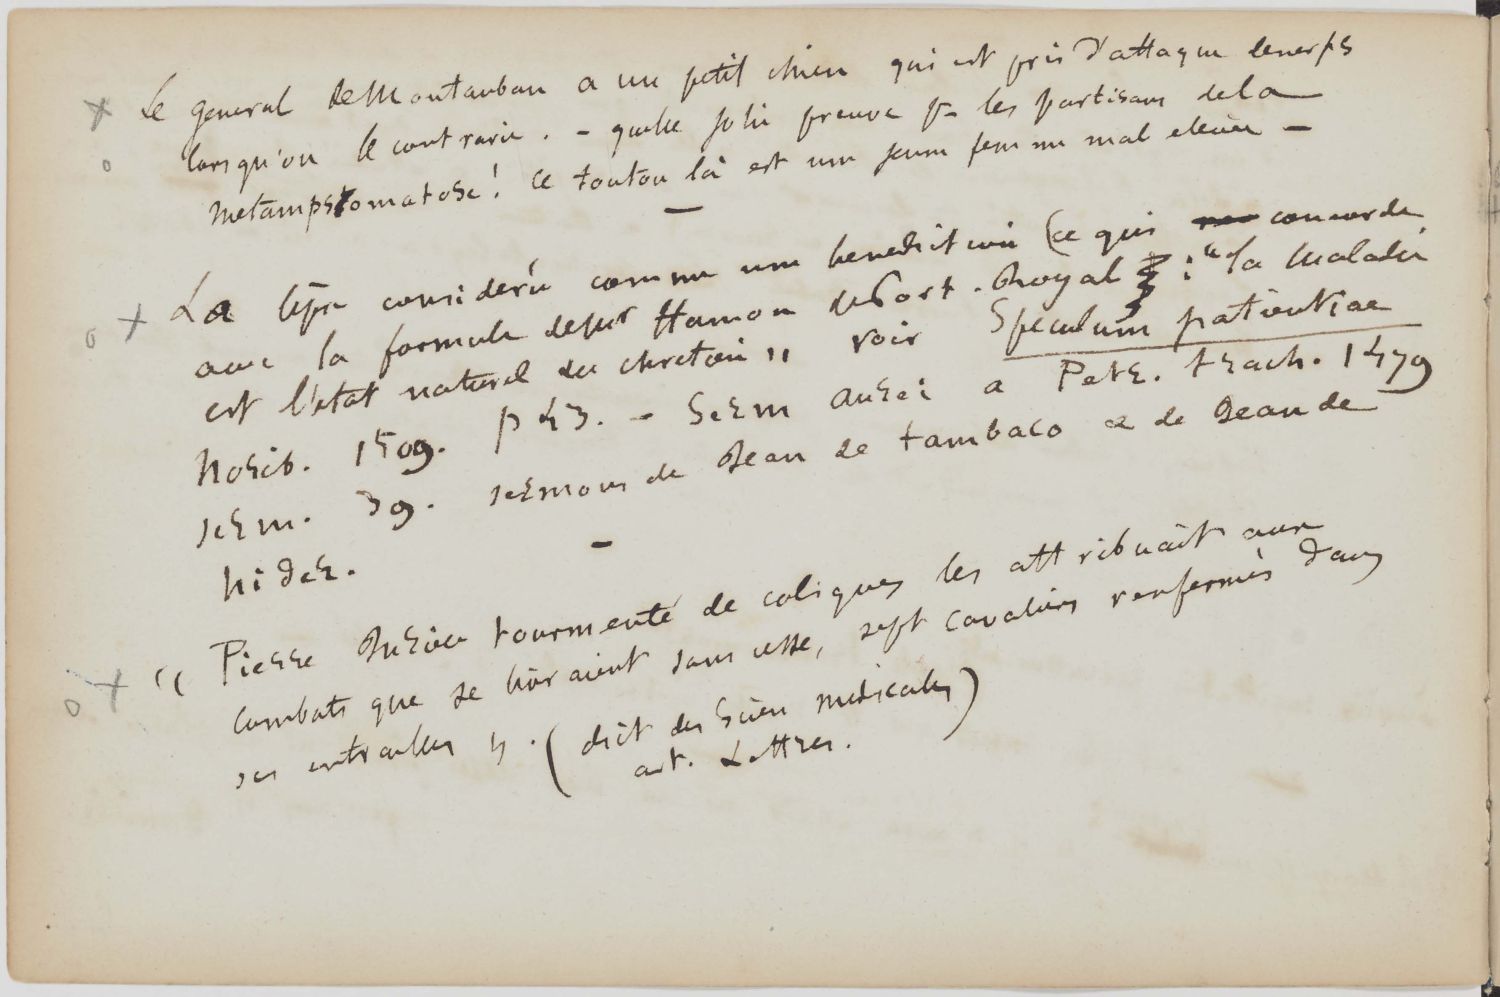 Le general de Montauban a un petit chien qui est pris d'attaque de nerfs
lorsqu'on le contrarie. - quelle jolie preuve pr les partisans de la
metampsTomatose! ce toutou là est une jeune femme mal elevée -
La lèpre considerée comme une benediction (ce qui concorde
avec la formule de Mr Hamon de Port-Royal : "la maladie
est l'etat naturel du chretien" voir Speculum patientiae
Norib. 1509. p 43. - Serm aurei a Petr. trach. 1479
serm. 39. sermons de Jean de tambaco & de Jean de
nider.
" Pierre Jurieu tourmenté de coliques les attribuait aux
combats que se livraient sans cesse, sept cavaliers renfermés dans
ses entrailles ". ( dict des scien medicales)
art. Lettres.